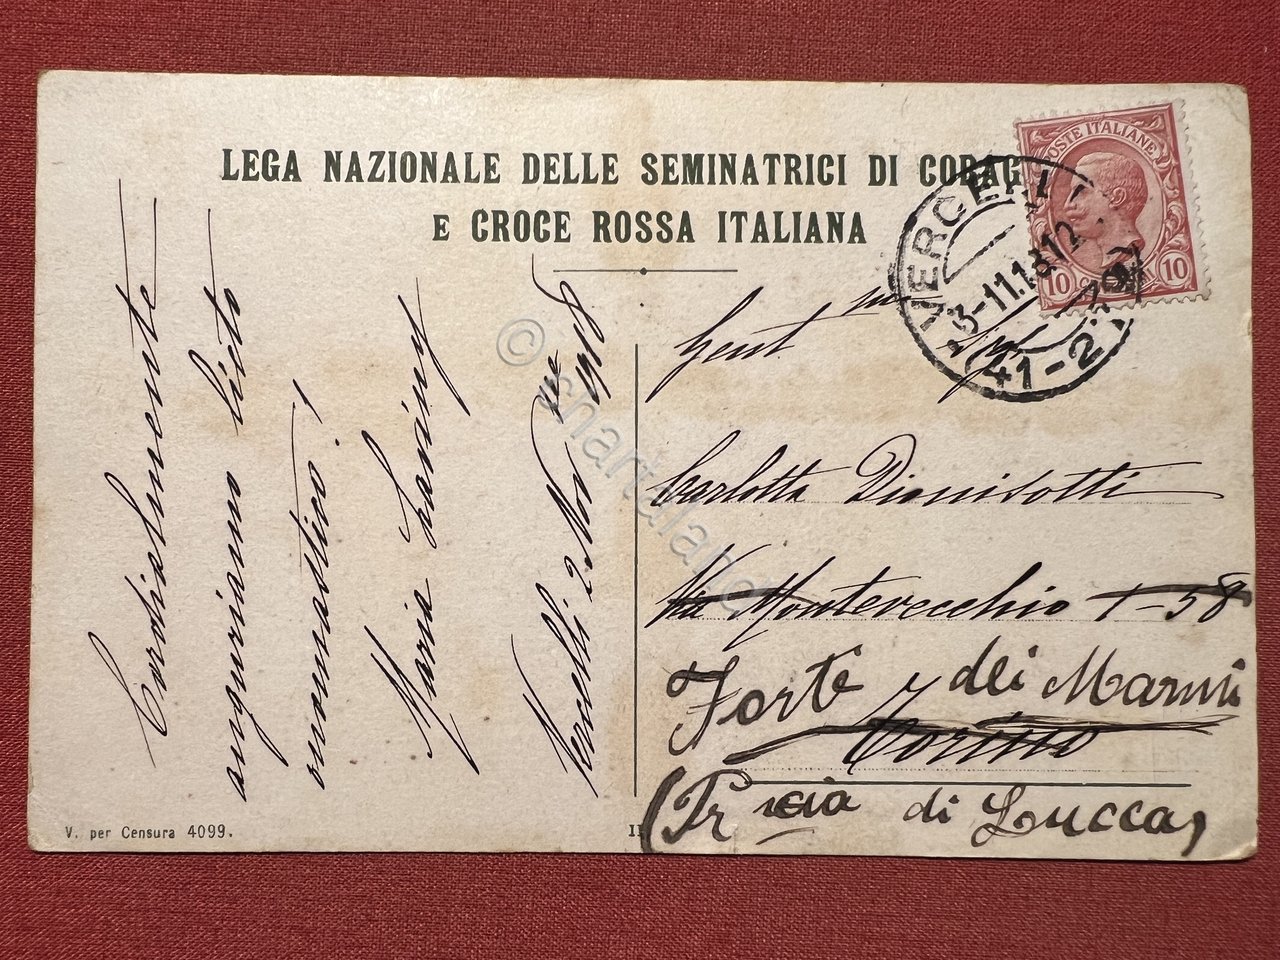 LEGA NAZIONALE DELLE SEMINATRICI DI CORAG
E CROCE ROSSA ITALIANA
POSTE ITALIANE
10 10
VERCELLI
3-11.18 12
41-2
Cordialmente
auguriamo lieto
onomastico!
Maria
Vercelli 2 Nov bre 1918
Gent ma
Carlotta Dionisotti
Via Montevecchio 58
Forte dei Marmi
Torino
(Pr vcia di Lucca)
V. per Censura 4099.
© shartuland